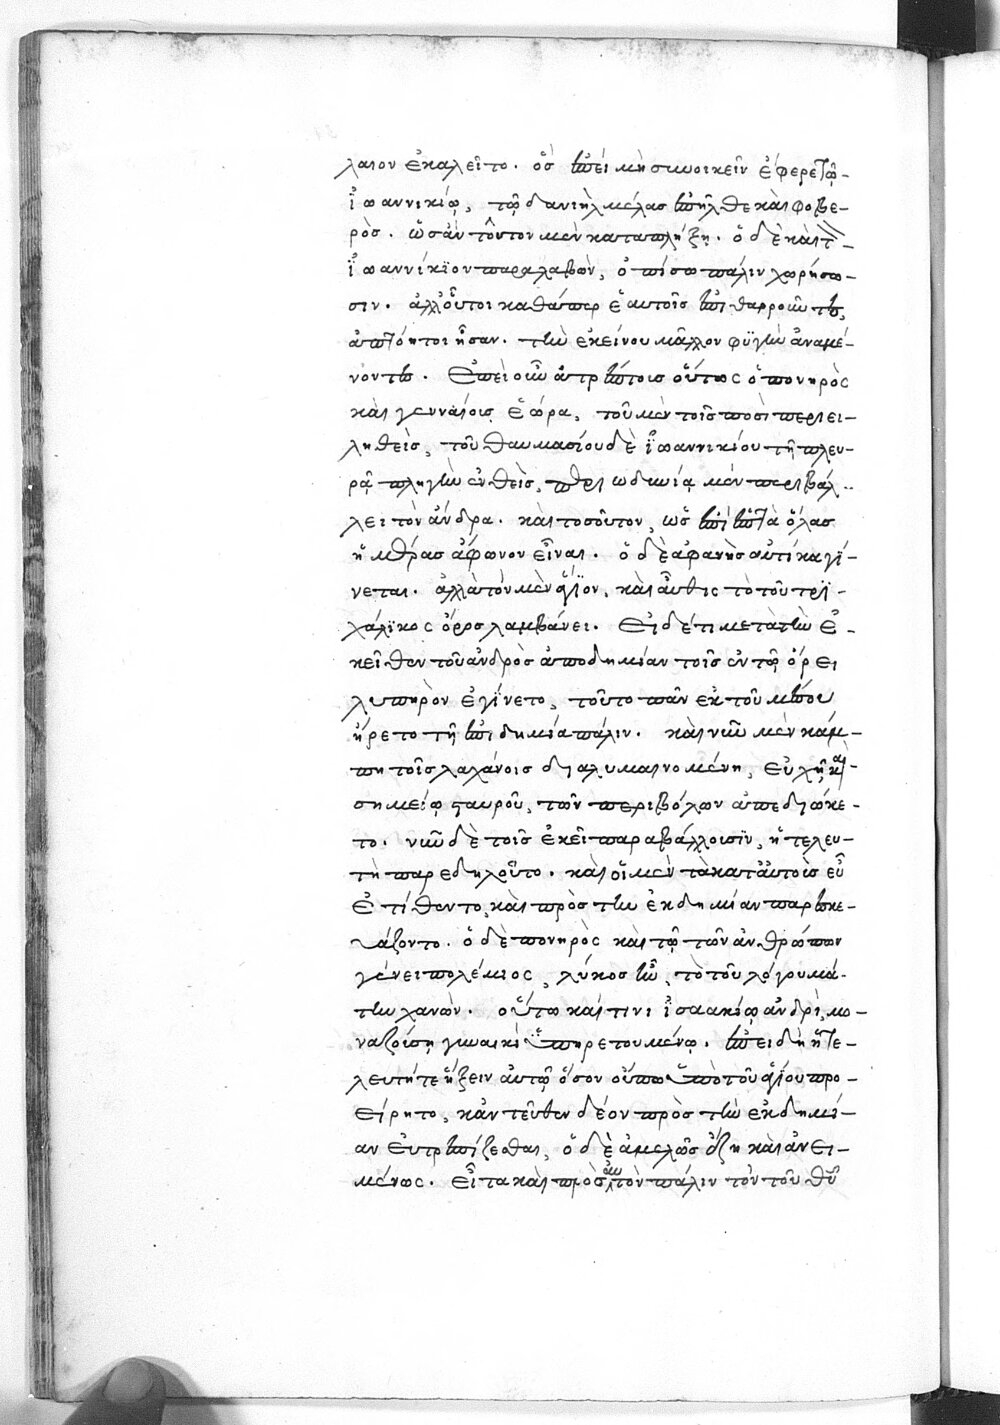 λαιον ἐκαλεῖτο. ὃς ἐπεὶ μὴ συνοικεῖν ἐφέρετο τῷ
Ἰωαννικίῳ, τῷ δανιὴλ μέλας ἐπῆλθε καὶ φοβε-
ρὸς. ὡς ἂν τοῦτον μὲν καταπλήξῃ. ὁ δὲ καὶ τ
Ἰωαννίκϊον παραλαβὼν, ὀπίσω πάλιν χωρήσω-
σιν. ἀλλ' οὗτοι καθάπερ ἑαυτοῖς ἐπιθαρροῦντες,
ἀπτόητοι ἦσαν. τὴν ἐκείνου μᾶλλον φϋγὴν ἀναμέ-
νοντες. Ἐπεὶ οὖν ἀτρέπτοις οὕτως ὁ πονηρὸς
καὶ γενναίοις ἑώρα, τοῦ μὲν τοῖς ποσὶ περιει-
ληθεὶς, τοῦ θαυμασίου δὲ Ἰωαννικίου τῇ πλευ-
ρᾷ πληγὴν ἐνθεὶς, πικρᾷ ὠδυνίᾳ μὲν περιβάλ-
λει τὸν ἄνδρα. καὶ τοσοῦτον, ὡς ἐπὶ ἑπτὰ ὅλας
ἡμέρας ἄφωνον εἶναι. ὁ δὲ ἀφανὴς αὐτίκα γί-
νεται. ἀλλὰ τὸν μὲν ἅγϊον, καὶ αὖθις τὸ τοῦ τρϊ-
χάλϊκος ὄρος λαμβάνει. Εἰ δέ τι μετὰ τὴν ἐ-
κεῖθεν τοῦ ἀνδρὸς ἀποδημίαν τοῖς ἐν τῷ ὄρει
λυπηρὸν ἐγίνετο, τοῦτο πᾶν ἐκ τοῦ μέσου
ᾔρετο τῇ ἐπιδημία πάλιν. καὶ νῦν μὲν κάμ-
πη τοῖς λαχάνοις διαλυμαινομένη, εὐχῇ καὶ
σημείῳ σταυροῦ, τῶν περιβόλων ἀπεδιώκε-
το. νῦν δὲ τοῖς ἐκεῖ παραβάλλουσϊν, ἡ τελευ-
τὴ παρεδηλοῦτο. καὶ οἱ μὲν τὰ κατ' αὐτοὺς εὖ
ἐτίθεντο, καὶ πρὸς τὴν ἐκδημίαν παρεσκε-
υάζοντο. ὁ δὲ πονηρὸς καὶ τῷ τῶν ἀνθρώπων
γένει πολέμιος, λύκος ὢν, τὸ τοῦ λόγου μά-
την χανὼν. οὕτω καί τινι ἰσαακίῳ ἀνδρὶ, μο-
ναζούσῃ γυναικὶ ὑπηρετουμένῳ. ἐπειδὴ ἥ τε-
λευτή τε ἥξειν αὐτῷ ὅσον οὔπω ὑπὸ τοῦ ἁγίου προ-
είρητο, κἀντεῦθεν δέον πρὸς τὴν ἐκδημί-
αν εὐτρεπίζεσθαι, ὁ δὲ ἀμελῶς ἔζη καὶ ἀνει-
μένως. Εἶτα καὶ πρὸς αὐτὸν πάλιν τὸν τοῦ θῦ